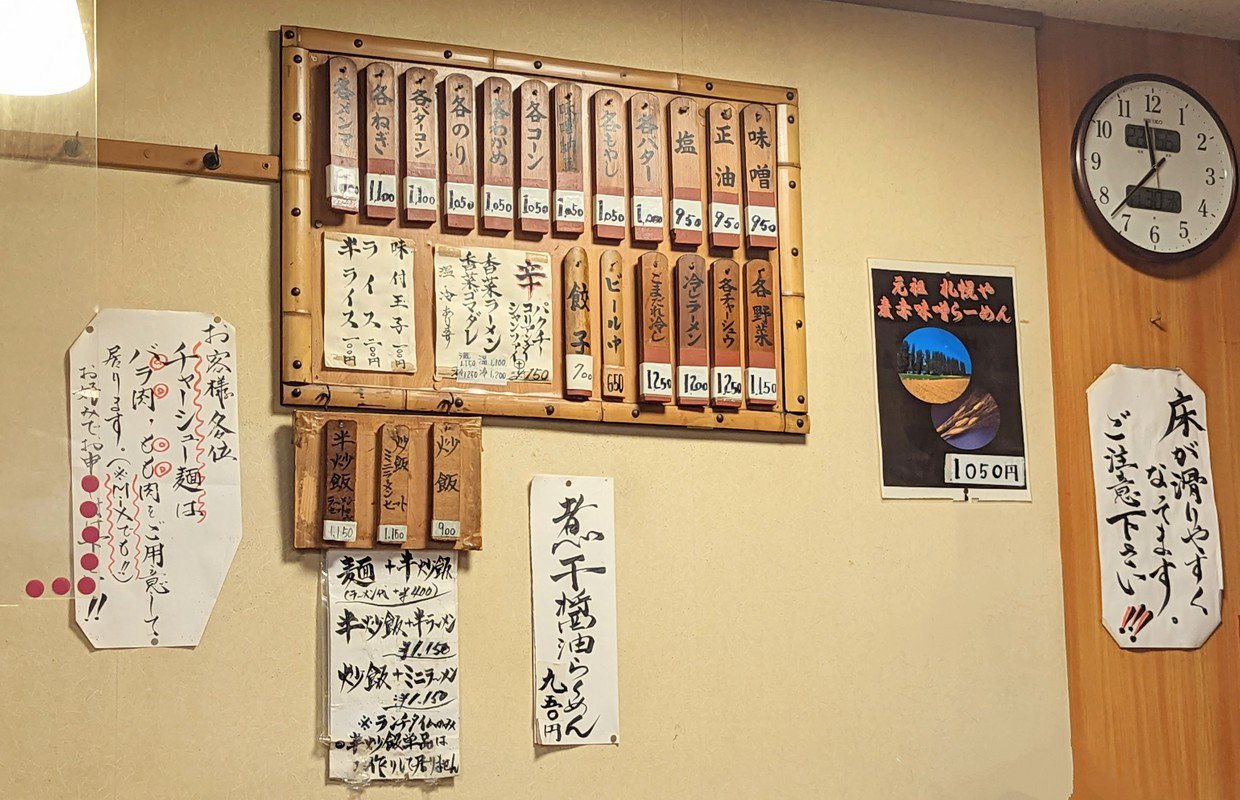 味噌
950
正油
950
塩
950
各バター
各もやし
1,050
1,050
各コーン
1,050
各わかめ
1,050
各のり
1,050
各バターコーン
1,100
各ねぎ
1,100
各メンマ
各野菜
1,150
各チャーシュウ
1,250
冷しラーメン
1200
ごまだれ冷し
1250
ビール中
650
餃子
700
辛
パクチー
コリアンダー
シャンツァイ
¥150
香菜ラーメン
香菜ゴマダレ
温 冷あります
味付玉子 一〇〇円
ライス 二〇〇円
半ライス 一〇〇円
炒飯
900
炒飯
ミニラーメンセット
1,150
半炒飯
1,150
麺+半炒飯
(ラーメン代+¥400)
半炒飯+半ラーメン
¥1,150
炒飯+ミニラーメン
¥1,150
※ランチタイムのみ
●半炒飯単品は
作りして居りません
煮干醤油らーめん
九五〇円
お客様各位
チャーシュー麺は
バラ肉・もも肉をご用意して
居ります。(※MIXでも!!)
お好みでお申
!!
元祖 札幌や
麦赤味噌らーめん
1050円
12
1
2
3
4
5
6
7
8
9
10
11
SEIKO
床が滑りやすく
なってます。
ご注意下さい!!!